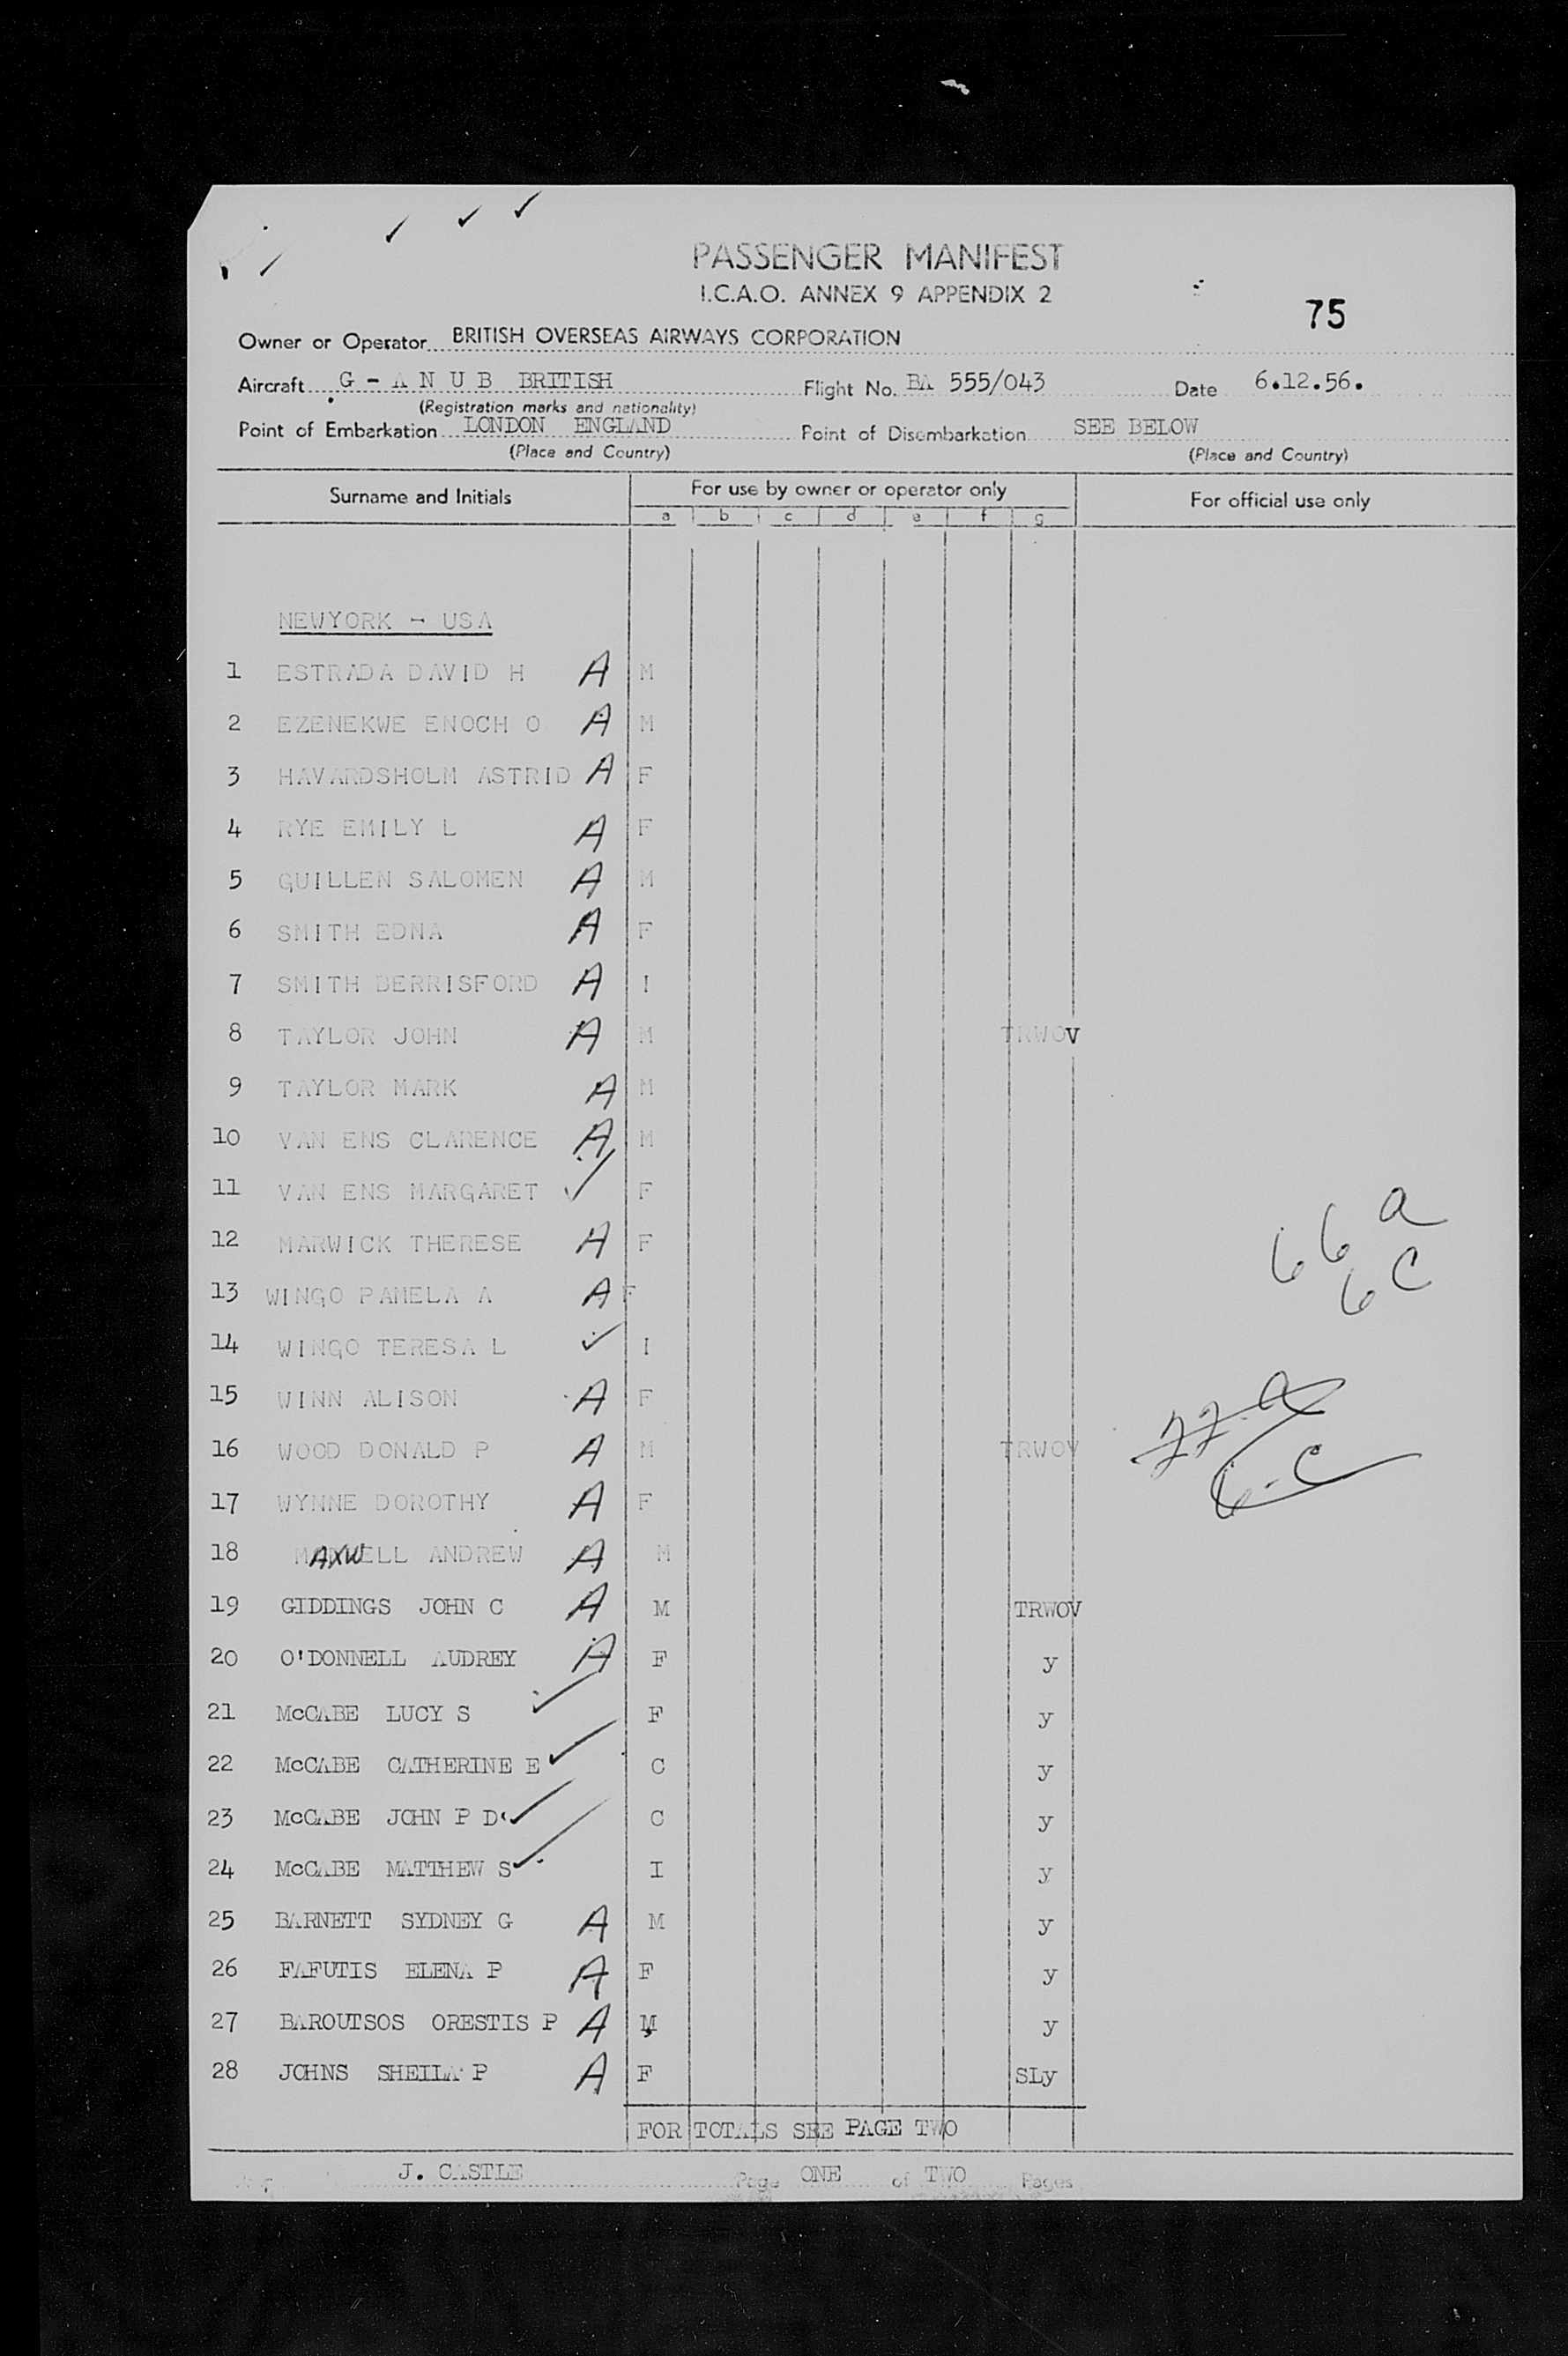 PASSENGER MANIFEST
I.C.A.O. ANNEX 9 APPENDIX 2
75
Owner or Operator BRITISH OVERSEAS AIRWAYS CORPORATION
Aircraft G - A N U B BRITISH Flight No. BA 555/043 Date 6.12.56.
(Registration marks and nationality)
Point of Embarkation LONDON ENGLAND Point of Disembarkation SEE BELOW
(Place and Country) (Place and Country)
Surname and Initials For use by owner or operator only For official use only
a b c d e f g
NEWYORK - USA
1 ESTRADA DAVID H A M
2 EZENEKWE ENOCH O A M
3 HAVARDSHOLM ASTRID A F
4 RYE EMILY L A F
5 GUILLEN SALOMEN A M
6 SMITH EDNA A F
7 SMITH BERRISFORD A I
8 TAYLOR JOHN A M TRWOV
9 TAYLOR MARK A M
10 VAN ENS CLARENCE A M
11 VAN ENS MARGARET ✓ F
12 MARWICK THERESE A F
66 a
6 C
13 WINGO PAMELA A A F
14 WINGO TERESA L ✓ I
15 WINN ALISON A F
16 WOOD DONALD P A M TRWOV
77 a
6 - C
17 WYNNE DOROTHY A F
18 MAXWELL ANDREW A M
19 GIDDINGS JOHN C A M TRWOV
20 O'DONNELL AUDREY A F y
21 McCABE LUCY S ✓ F y
22 McCABE CATHERINE E ✓ C y
23 McCABE JOHN P D ✓ C y
24 McCABE MATTHEW S ✓ I y
25 BARNETT SYDNEY G A M y
26 FAFUTIS ELENA P A F y
27 BAROUTSOS ORESTIS P A M y
28 JOHNS SHEILA P A F SLy
FOR TOTALS SEE PAGE TWO
J. CASTLE Page ONE of TWO Pages